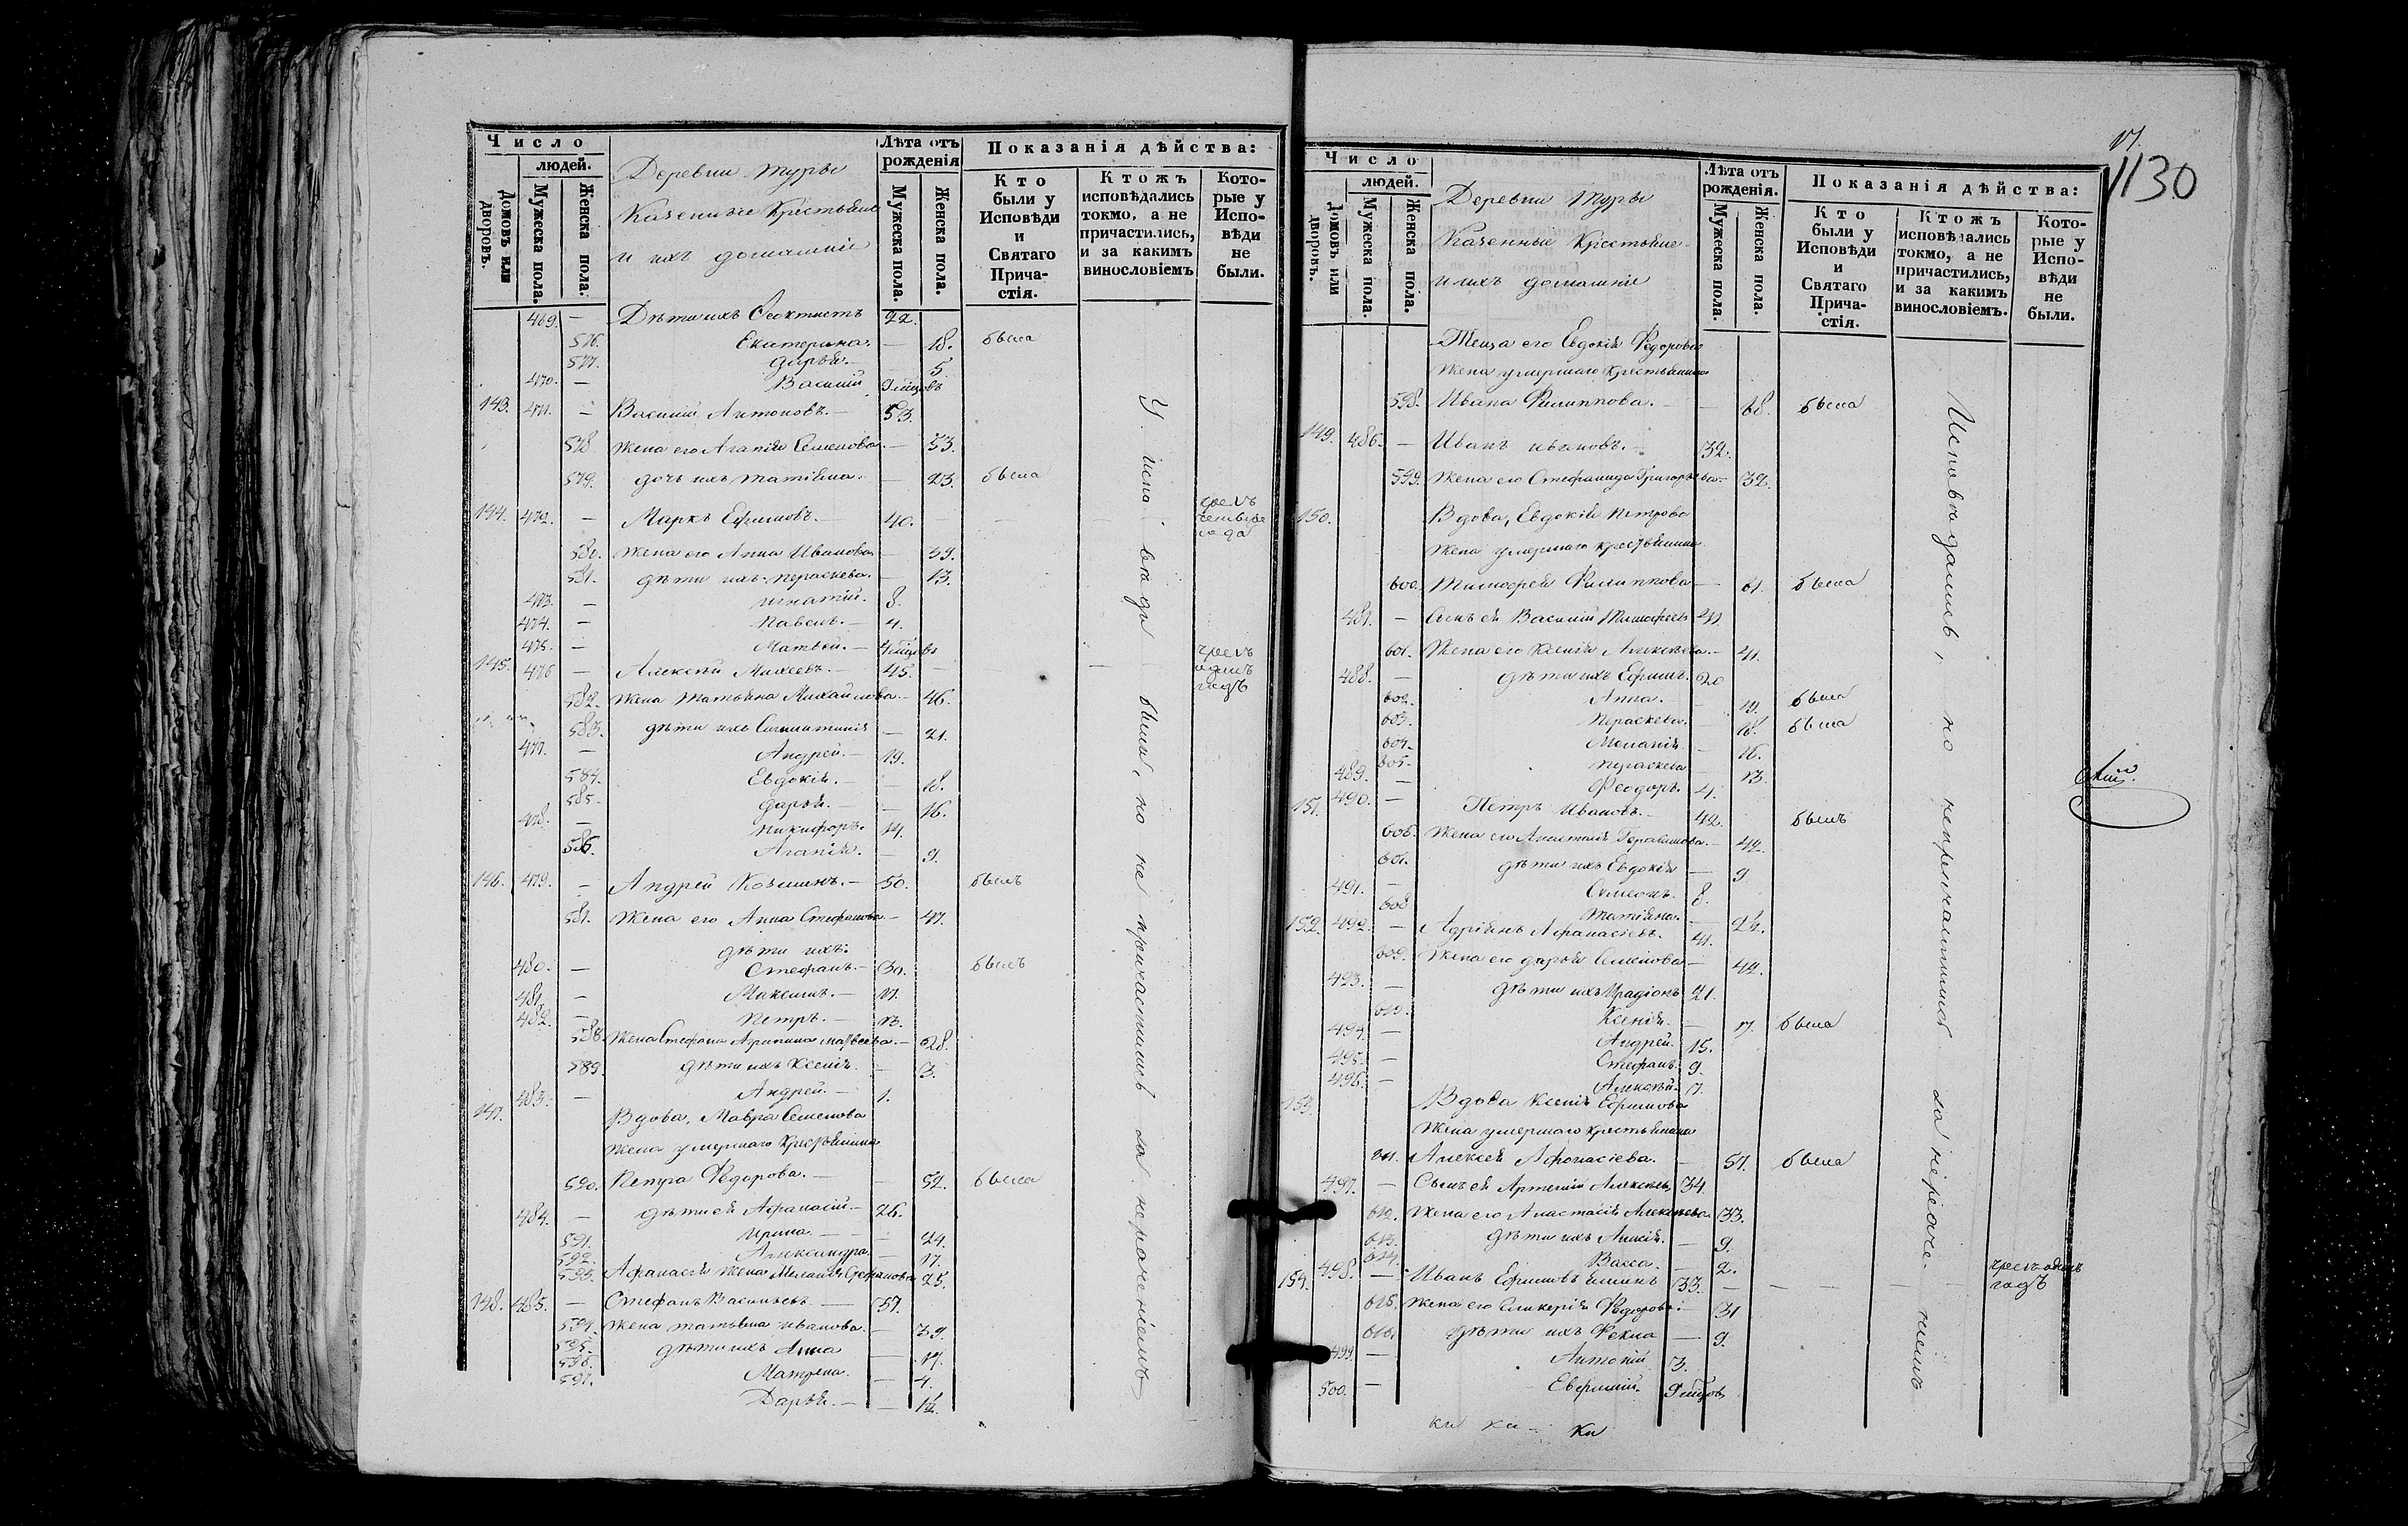 Число
людей.
Домовъ или дворовъ.
Мужеска пола.
Женска пола.
Деревни Туры
Казенные Крестьяне
и ихъ домашніе
Лѣта отъ рожденія
Мужеска пола.
Женска пола.
Показанія дѣйства:
Кто были у Исповѣди и Святаго Причастія.
Ктожъ исповѣдались токмо, а не причастились, и за какимъ винословіемъ
Которые у Исповѣди не были.
469. — Дѣти ихъ Феоктистъ 22.
576. Екатерина. — 18. была
577. Дарья. — 5.
470. — Василій 9 мѣцовъ
143. 471. — Василій Антоновъ. — 53.
578 Жена его Агапія Семенова. — 53.
579. дочь ихъ Татіана. — 23. была
144. 472. — Маркъ Ефимовъ. — 40. — — —
580. Жена его Анна Иванова — 39.
581. дѣти ихъ: Параскева. — 13.
473. — Игнатій. 8.
474. — Павелъ. — 4.
475. — Матвей. — 4 мѣцовъ
145. 476 — Алексѣй Михеевъ. — 45. — —
582. Жена Татьяна Михайлова. — 46.
583. дѣти ихъ — 21.
477. — Андрей. — 19.
584. Евдокія. — — 18.
585. Дарья. — — 16.
478. — Никифоръ. — 14.
586. Агапія. — 9.
146. 479. — Андрей — 50. былъ
587. Жена его Анна Стефанова — 47.
дѣти ихъ:
480. — Стефанъ. — 30. былъ
481. — Максимъ. — 17.
482. — Петръ. — 13.
588. Жена Стефана Агрипина Матвеева. — 28.
589. дѣти ихъ Ксенія. — 3.
483. — Андрей. — 1.
147. Вдова, Мавра Семенова
Жена умершаго Крестьянина
590. Петра Федорова. — — 52. была
484. — дѣти ей Афанасій. — 26.
591. Ирина. — — 24.
592. Александра. — 17.
593. Афанасія жена Меланія Стефанова 25.
148. 485. — Стефанъ Васильевъ. — 57.
594. Жена Татьяна Иванова. — 39.
595. дѣти ихъ Анна — 17.
596. Матрена. — 4.
597. Дарья. — — 1½.
У исповѣди были, но не причастились за нераченіемъ
17.
1130
Число
людей.
Домовъ или дворовъ.
Мужеска пола.
Женска пола.
Деревни Туры
Казенные Крестьяне
и ихъ домашніе
Лѣта отъ рожденія.
Мужеска пола.
Женска пола.
Показанія дѣйства:
Кто были у Исповѣди и Святаго Причастія.
Ктожъ исповѣдались токмо, а не причастились, и за какимъ винословіемъ.
Которые у Исповѣди не были.
Теща его Евдокія Федорова
Жена умершаго Крестьянина
598. Ивана Филиппова. — — 68. была
149. 486. — Иванъ Ивановъ. — 32.
599. Жена его Стефанида Григорьева — 32.
150. Вдова, Евдокія Петрова
Жена умершаго крестьянина
600. Тимофея Филиппова — — 61. была
487. — Сынъ ей Василій Тимофеевъ 41
601. Жена его Ксенія Алексѣева. — 41.
488. — дѣти ихъ Ефимъ. 20
602. Анна. — 19. была
603. Параскева. — 18. была
604. Меланія. — 16.
605. Параскева — 13.
489. — Феодоръ. 4.
151. 490. — Петръ Ивановъ. — 42. былъ
606. Жена его Анастасія Герасимова. — 42.
607. дѣти ихъ Евдокія — 9
491. — Симеонъ. 8.
608 Татіана. — 2½.
152. 492. — Адріянъ Афанасіевъ. 41.
609. Жена его Дарья Семенова — 42.
493. — дѣти ихъ Иродіонъ 21.
610. Ксенія. — 17. была
494. — Андрей. 15.
495. — Стефанъ. 9.
496. — Алексѣй. 7.
153. Вдова Ксенія Ефимова
Жена умершаго крестьянина
611. Алексея Афонасіева. — 57. была
497. — Сынъ ей Артемій Алексѣевъ 34.
612. Жена его Анастасія Алексѣева 33.
613. дѣти ихъ — 9.
614. Васса. — 2.
154. 498. — Иванъ Ефимовъ 33. — — — чрезъ одинъ годъ
615. Жена его Гликерія Федорова — 31
616. дѣти ихъ Фекла — 9.
499. — Антоній 3.
500. — Евфимій. 9 мѣцовъ
Исповѣдались, но непричастились за нерачениемъ